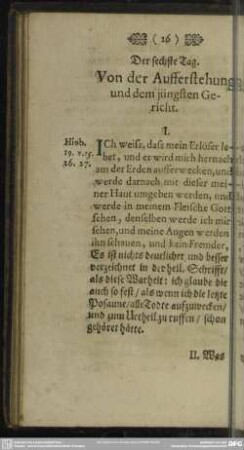 ( 26 )
Der sechste Tag.
Von der Aufferstehung
und dem jüngsten Ge-
richt.
I.
Hiob.
19. v. 25.
26. 27.
ICh weiss, dass mein Erlöser le-
bet, und er wird mich hernach
aus der Erden aufferwecken, und
werde darnach mit dieser mei-
ner Haut umgeben werden, und
werde in meinem Fleische Gott
sehen, denselben werde ich mir
sehen, und meine Augen werden
ihn schauen, und kein Fremder,
Es ist nichts deutlicher und besser
verzeichnet in der heil. Schrifft/
als diese Warheit: ich glaube die
auch so fest/ als wenn ich die letzte
Posaune/ alle Todte aufzuwecken/
und zum Urtheil zu ruffen/ schon
gehöret hätte.
II. Was